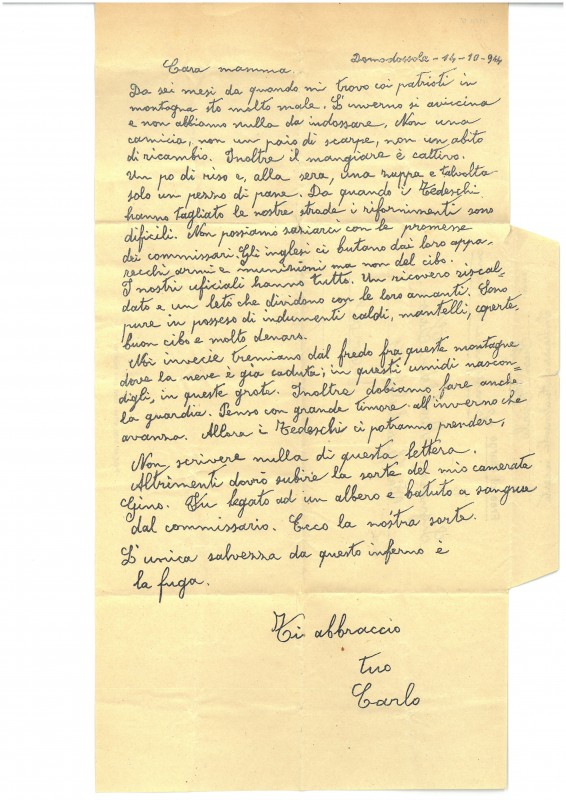 Domodossola - 14-10-944
Cara mamma.
Da sei mesi da quando mi trovo coi patrioti in
montagna sto molto male. L'inverno si aviccina
e non abbiamo nulla da indossare. Non una
camicia, non un paio di scarpe, non un abito
di ricambio. Inoltre il mangiare è cattivo.
Un po di riso e, alla sera, una zuppa e talvolta
solo un pezzo di pane. Da quando i Tedeschi
hanno tagliato le nostre strade i rifornimenti sono
dificili. Non possiamo saziarci con le promesse
dei commissari. Gli inglesi ci butano dai loro appa-
recchi armi e munizioni ma non del cibo.
I nostri uficiali hanno tutto. Un ricovero riscal-
dato e un leto che dividono con le loro amanti. Sono
pure in posseso di indumenti caldi, mantelli, coperte
buon cibo e molto denaro.
Noi invecie tremiamo dal fredo fra queste montagne
dove la neve è già caduta; in questi umidi nascon-
digli, in queste grote. Inoltre dobiamo fare anche
la guardia. Penso con grande timore all'inverno che
avanza. Allora i Tedeschi ci potranno prendere;
Non scrivere nulla di questa lettera.
Altrimenti dovrò subire la sorte del mio camerata
Gino. Fu legato ad un albero e batuto a sangue
dal commissario. Ecco la nostra sorte.
L'unica salvezza da questo inferno è
la fuga.
Ti abbraccio
tuo
Carlo